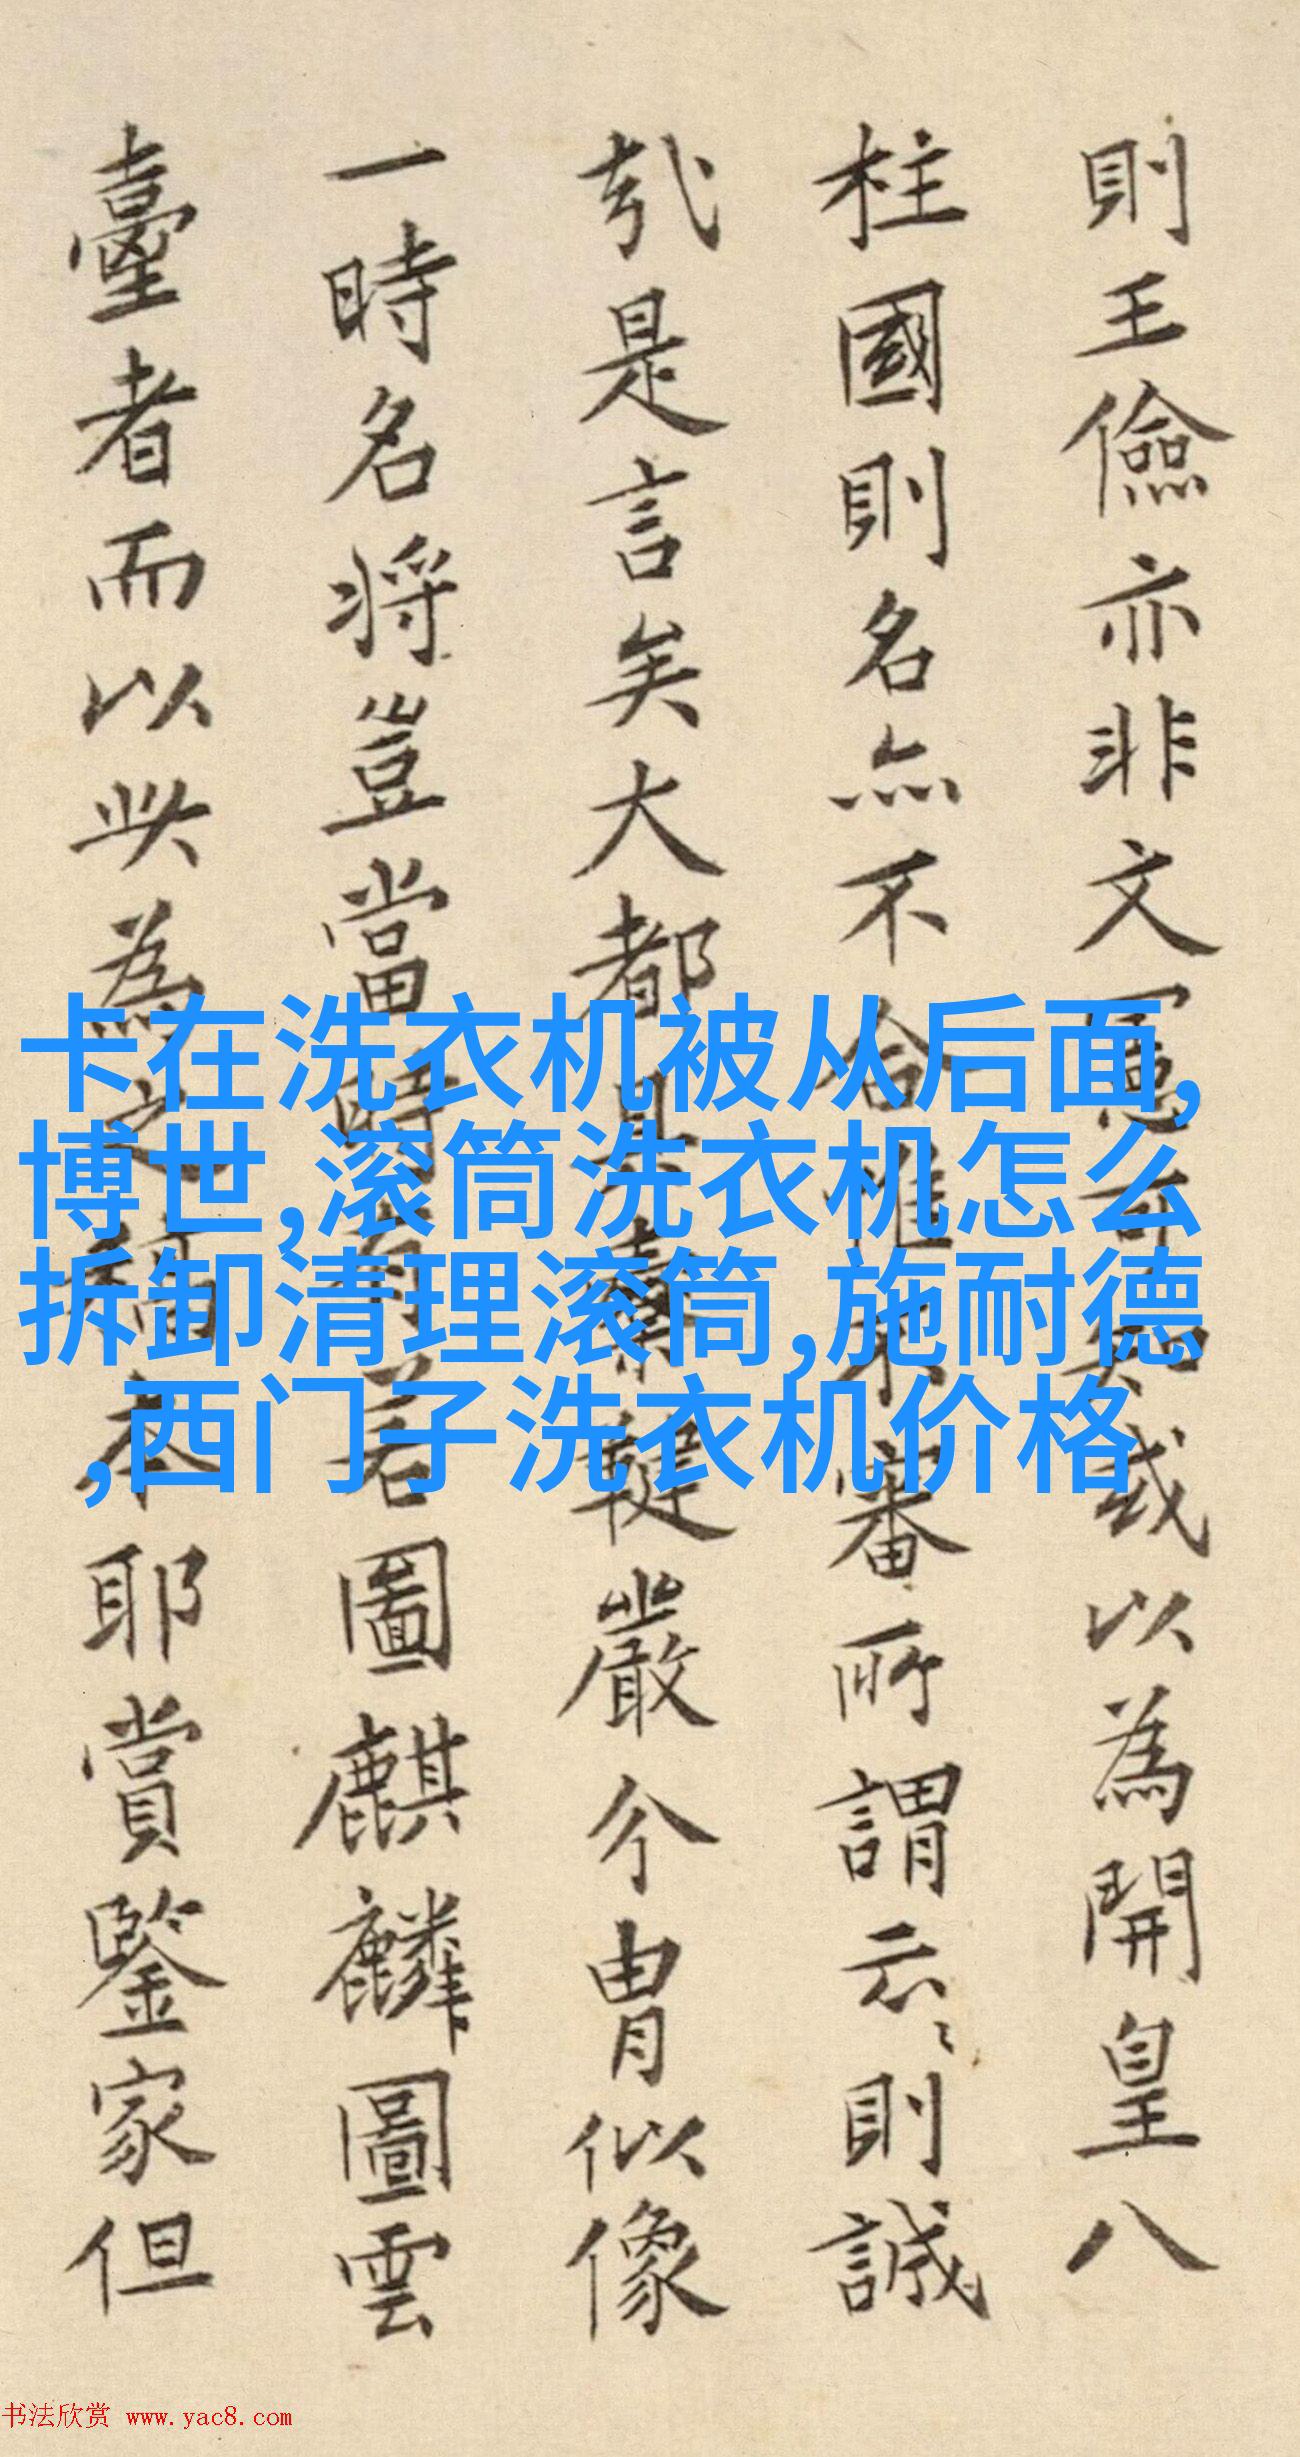 則王儉亦非文憲或以為開皇八
柱國則名亦不合惟審所謂云〻則誠
哉是言矣大都具櫜鞬嚴介冑似像
一時名將豈當時有若圖麒麟圖雲
臺者而以此為之稿本耶賞鑒家但
卡在洗衣机被从后面,
博世,滚筒洗衣机怎么
拆卸清理滚筒,施耐德
,西门子洗衣机价格
书法欣赏 www.yac8.com